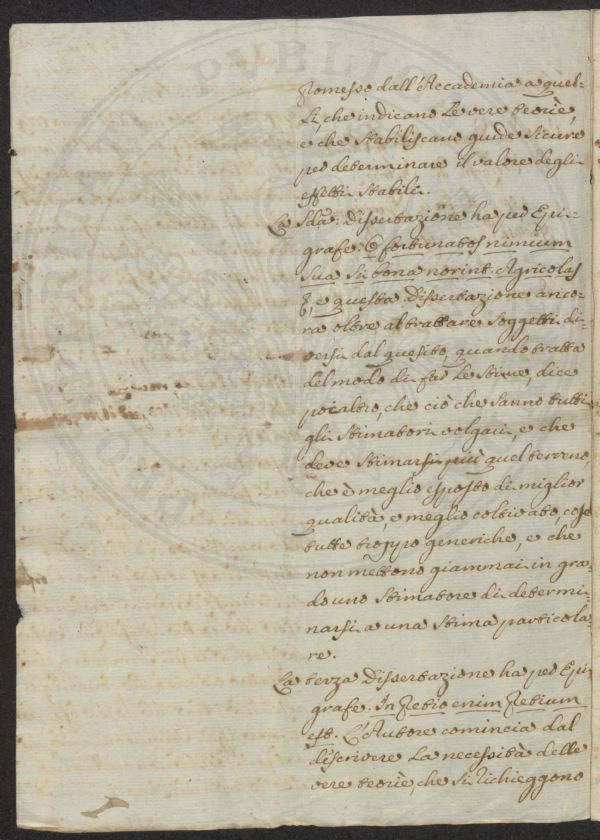 PVBLI
Promesso dall'Accademia a quel-
li, che indicano le vere teorie,
e che stabiliscano guide sicure
per determinare il valore degli
effetti stabili.
La Sda: Dissertazione ha per Epi-
grafe: O fortunatos nimium
sua si bona norint Agricolas
e questa Dissertazione anco-
ra oltre al trattare soggetti di-
versi dal quesito, quando tratta
del modo di far le stime, dice
pocaltro, che ciò che sanno tutti
gli stimatori volgari, e che
deve stimarsi più quel terreno,
che è meglio esposto di miglior
qualità, e meglio coltivato, cose
tutte troppo generiche, e che
non mettono giammai in gra-
do uno stimatore di determi-
narsi a una stima particola-
re.
La terza Dissertazione ha per Epi-
grafe. In pretio enim pretium
est. L'Autore comincia dal
discrivere la necessità delle
vere teorie, che si richieggono